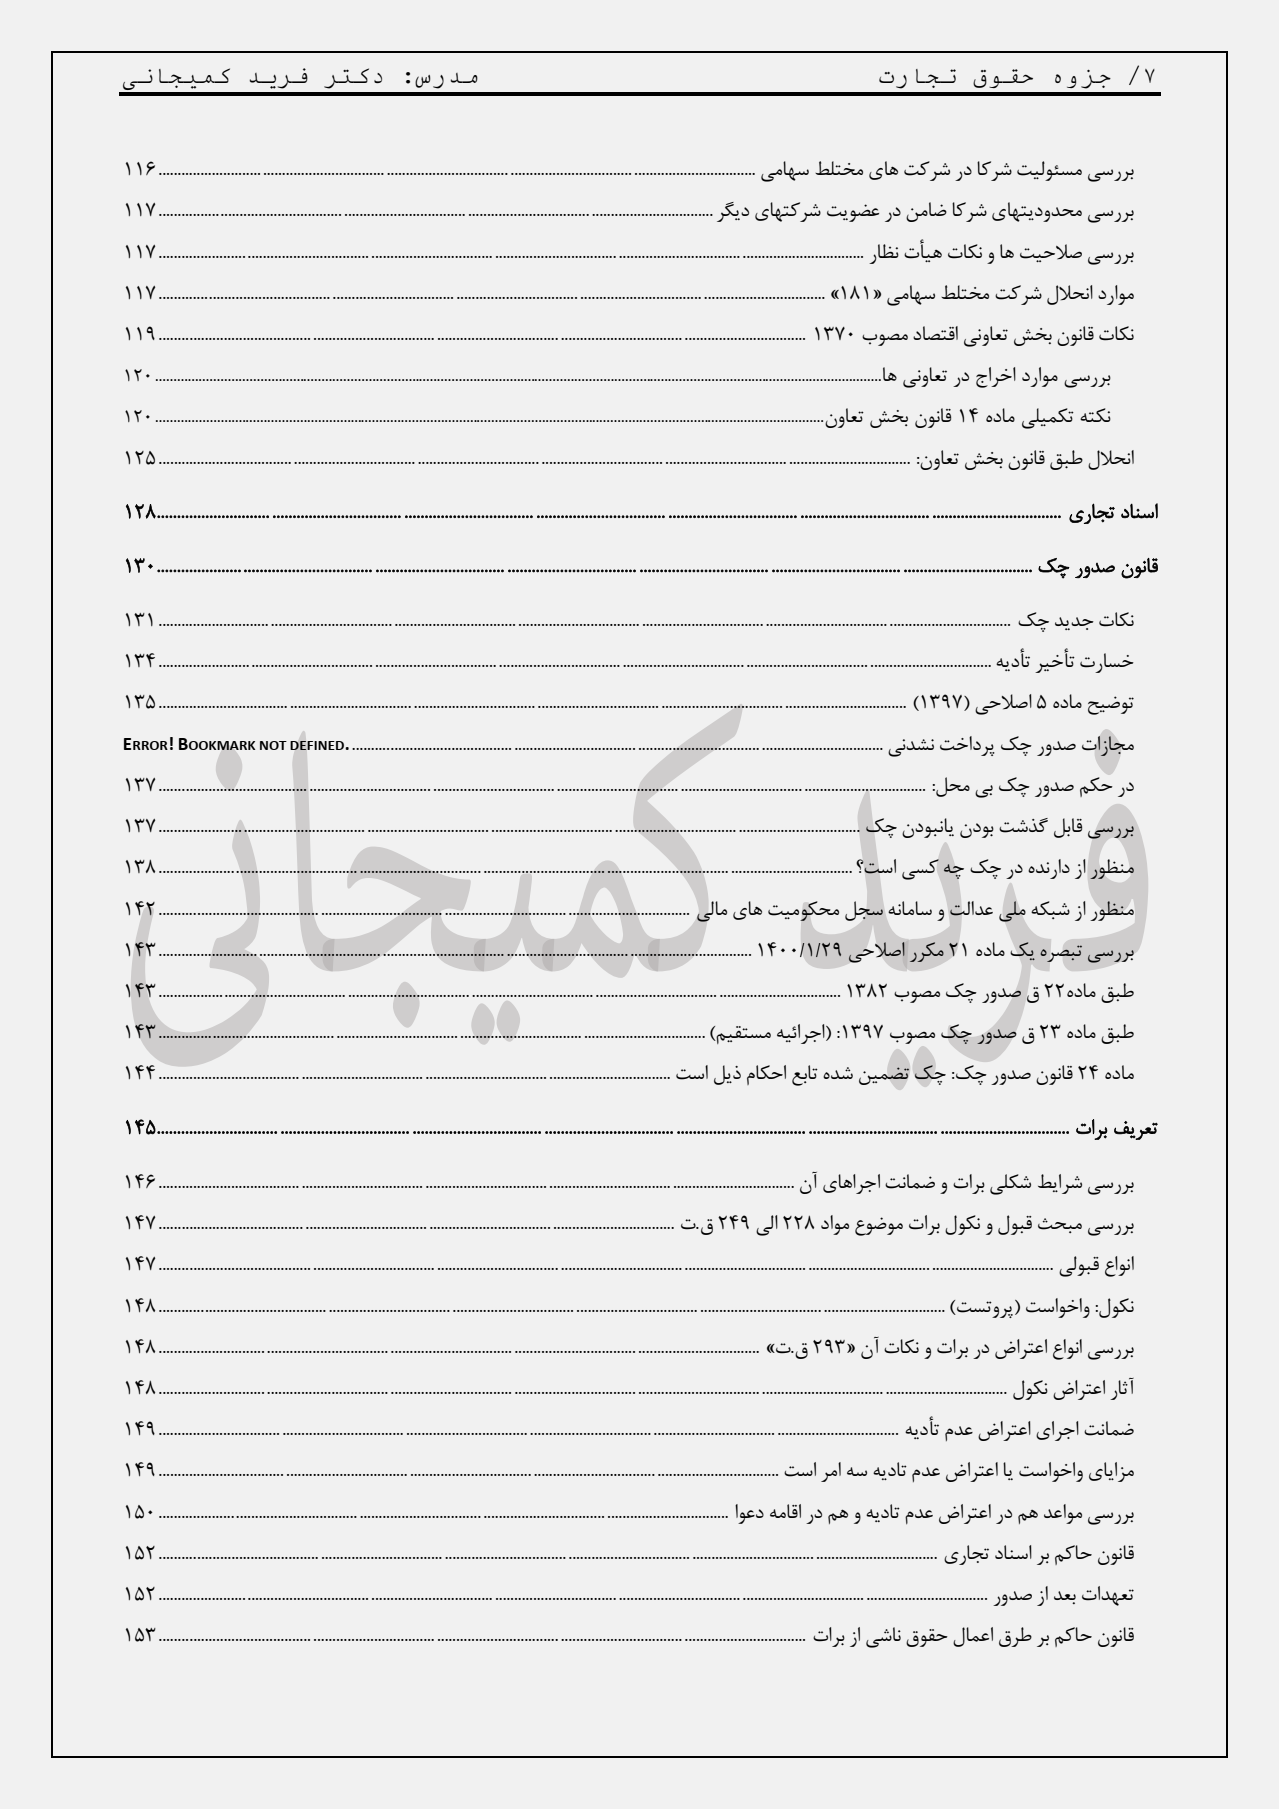 ۷/ جزوه حقوق تجارت مدرس: دکتر فرید کمیجانی
بررسی مسئولیت شرکا در شرکت های مختلط سهامی ۱۱۶
بررسی محدودیتهای شرکا ضامن در عضویت شرکتهای دیگر ۱۱۷
بررسی صلاحیت ها و نکات هیأت نظار ۱۱۷
موارد انحلال شرکت مختلط سهامی «۱۸۱» ۱۱۷
نکات قانون بخش تعاونی اقتصاد مصوب ۱۳۷۰ ۱۱۹
بررسی موارد اخراج در تعاونی ها ۱۲۰
نکته تکمیلی ماده ۱۴ قانون بخش تعاون ۱۲۰
انحلال طبق قانون بخش تعاون: ۱۲۵
اسناد تجاری ۱۲۸
قانون صدور چک ۱۳۰
نکات جدید چک ۱۳۱
خسارت تأخیر تأدیه ۱۳۴
توضیح ماده ۵ اصلاحی (۱۳۹۷) ۱۳۵
مجازات صدور چک پرداخت نشدنی ERROR! BOOKMARK NOT DEFINED.
در حکم صدور چک بی محل: ۱۳۷
بررسی قابل گذشت بودن یانبودن چک ۱۳۷
منظور از دارنده در چک چه کسی است؟ ۱۳۸
منظور از شبکه ملی عدالت و سامانه سجل محکومیت های مالی ۱۴۲
بررسی تبصره یک ماده ۲۱ مکرر اصلاحی ۱۴۰۰/۱/۲۹ ۱۴۳
طبق ماده۲۲ ق صدور چک مصوب ۱۳۸۲ ۱۴۳
طبق ماده ۲۳ ق صدور چک مصوب ۱۳۹۷: (اجرائیه مستقیم) ۱۴۳
ماده ۲۴ قانون صدور چک: چک تضمین شده تابع احکام ذیل است ۱۴۴
تعریف برات ۱۴۵
بررسی شرایط شکلی برات و ضمانت اجراهای آن ۱۴۶
بررسی مبحث قبول و نکول برات موضوع مواد ۲۲۸ الی ۲۴۹ ق.ت ۱۴۷
انواع قبولی ۱۴۷
نکول: واخواست (پروتست) ۱۴۸
بررسی انواع اعتراض در برات و نکات آن «۲۹۳ ق.ت» ۱۴۸
آثار اعتراض نکول ۱۴۸
ضمانت اجرای اعتراض عدم تأدیه ۱۴۹
مزایای واخواست یا اعتراض عدم تادیه سه امر است ۱۴۹
بررسی مواعد هم در اعتراض عدم تادیه و هم در اقامه دعوا ۱۵۰
قانون حاکم بر اسناد تجاری ۱۵۲
تعهدات بعد از صدور ۱۵۲
قانون حاکم بر طرق اعمال حقوق ناشی از برات ۱۵۳
فرید کمیجانی